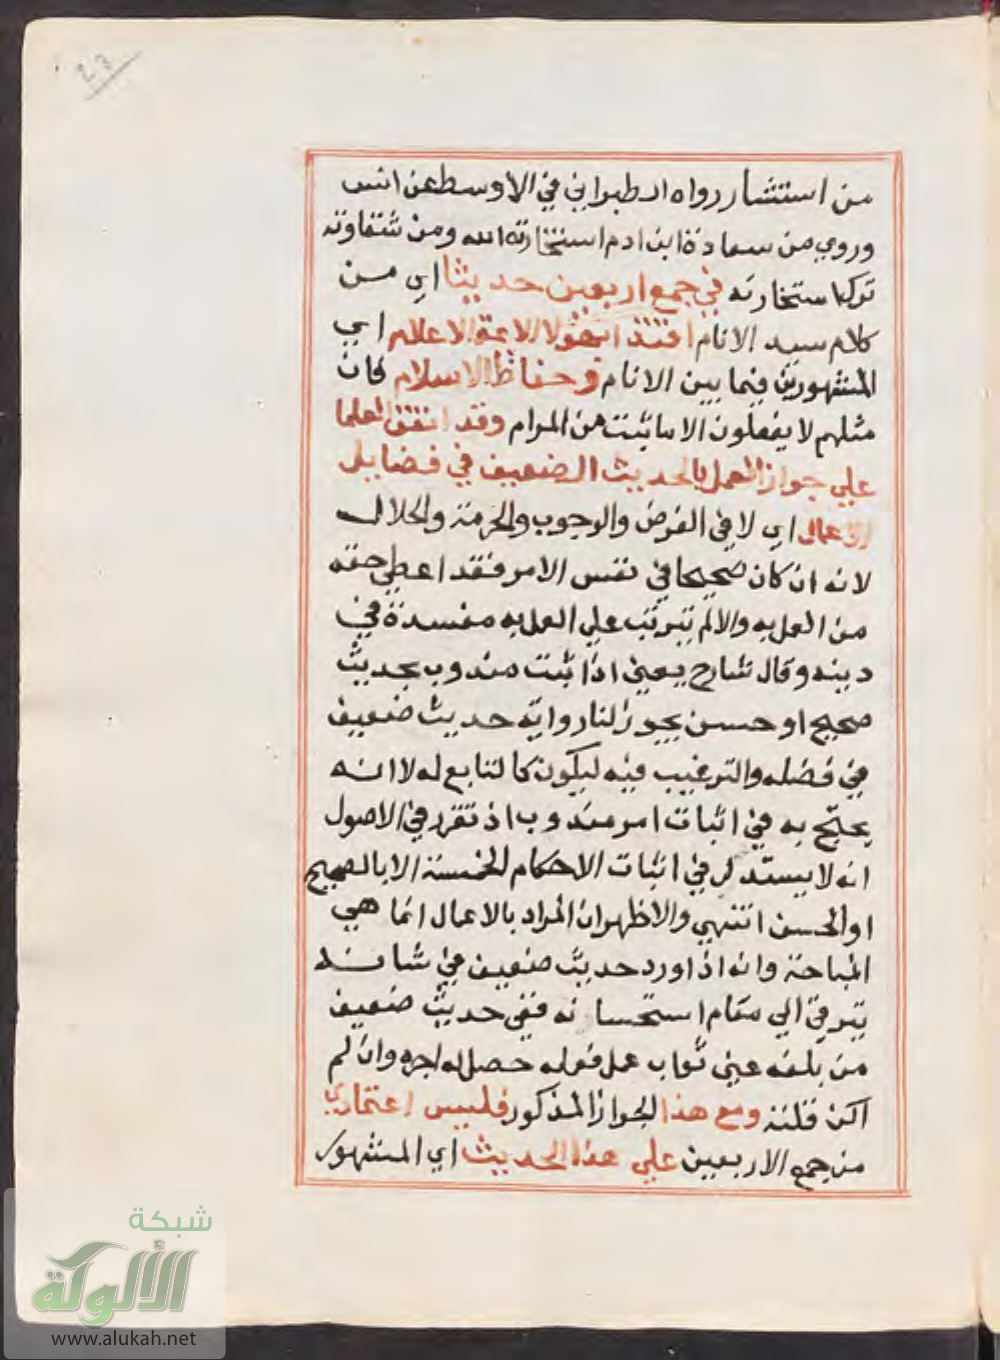 23
من استشار رواه الطبراني في الاوسط عن انس
وروي من سعادة ابن ادم استخارته الله ومن شقاوته
تركه استخارته في جمع اربعين حديثا اي من
كلام سيد الانام اقتداء بهؤلا الائمة الاعلام اي
المشهورين فيما بين الانام وحفاظ الاسلام فان
مثلهم لا يفعلون الا ما يثبت من المرام وقد اتفق العلما
علي جواز العمل بالحديث الضعيف في فضايل
الاعمال اي لا في الفرض والوجوب والحرمة والحلال
لانه ان كان صحيحا في نفس الامر فقد اعطي حقه
من العمل به والا لم يترتب علي العمل به مفسدة في
دينه وقال شارح يعني اذا ثبت مندوب بحديث
صحيح او حسن يجوز لنا رواية حديث ضعيف
في فضله والترغيب فيه ليكون كالتابع له لا انه
يحتج به في اثبات امر مندوب اذ تقرر في الاصول
انه لا يستدل في اثبات الاحكام الخمسة الا بالصحيح
او الحسن انتهي والاظهر ان المراد بالاعمال انما هي
المباحة وانه اذا ورد حديث ضعيف في شانه
يترقي الي مقام استحسانه ففي حديث ضعيف
من بلغه عني ثواب عمل فعله حصل له اجره وان لم
اكن قلته ومع هذا الجواز المذكور فليس اعتمادي
من جمع الاربعين علي هذا الحديث اي المشهور
شبكة
الألوكة
www.alukah.net